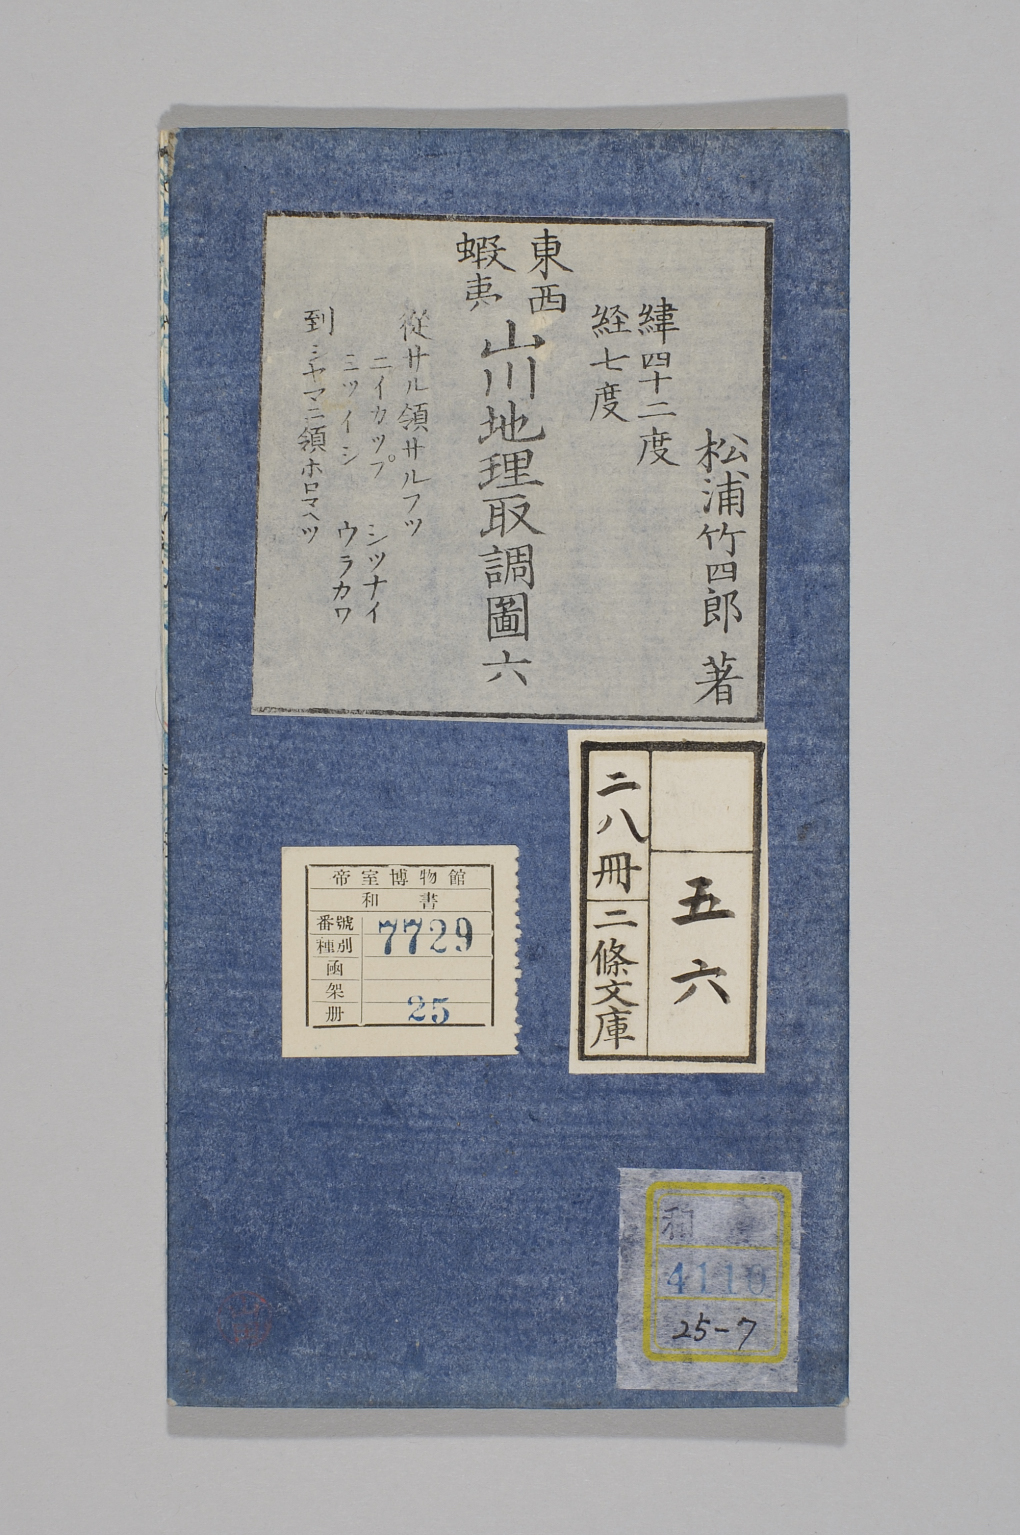 松浦竹四郎 著
緯四十二度
経七度
東西
蝦夷
山川地理取調圖六
從サル領サルフツ
ニイカツプ シツナイ
ミツイシ ウラカワ
到シヤマニ領ホロマヘツ
五六
二八冊
二條文庫
帝室博物館
和書
番號 7729
種別
函
架
册 25
和書
4110
25-7